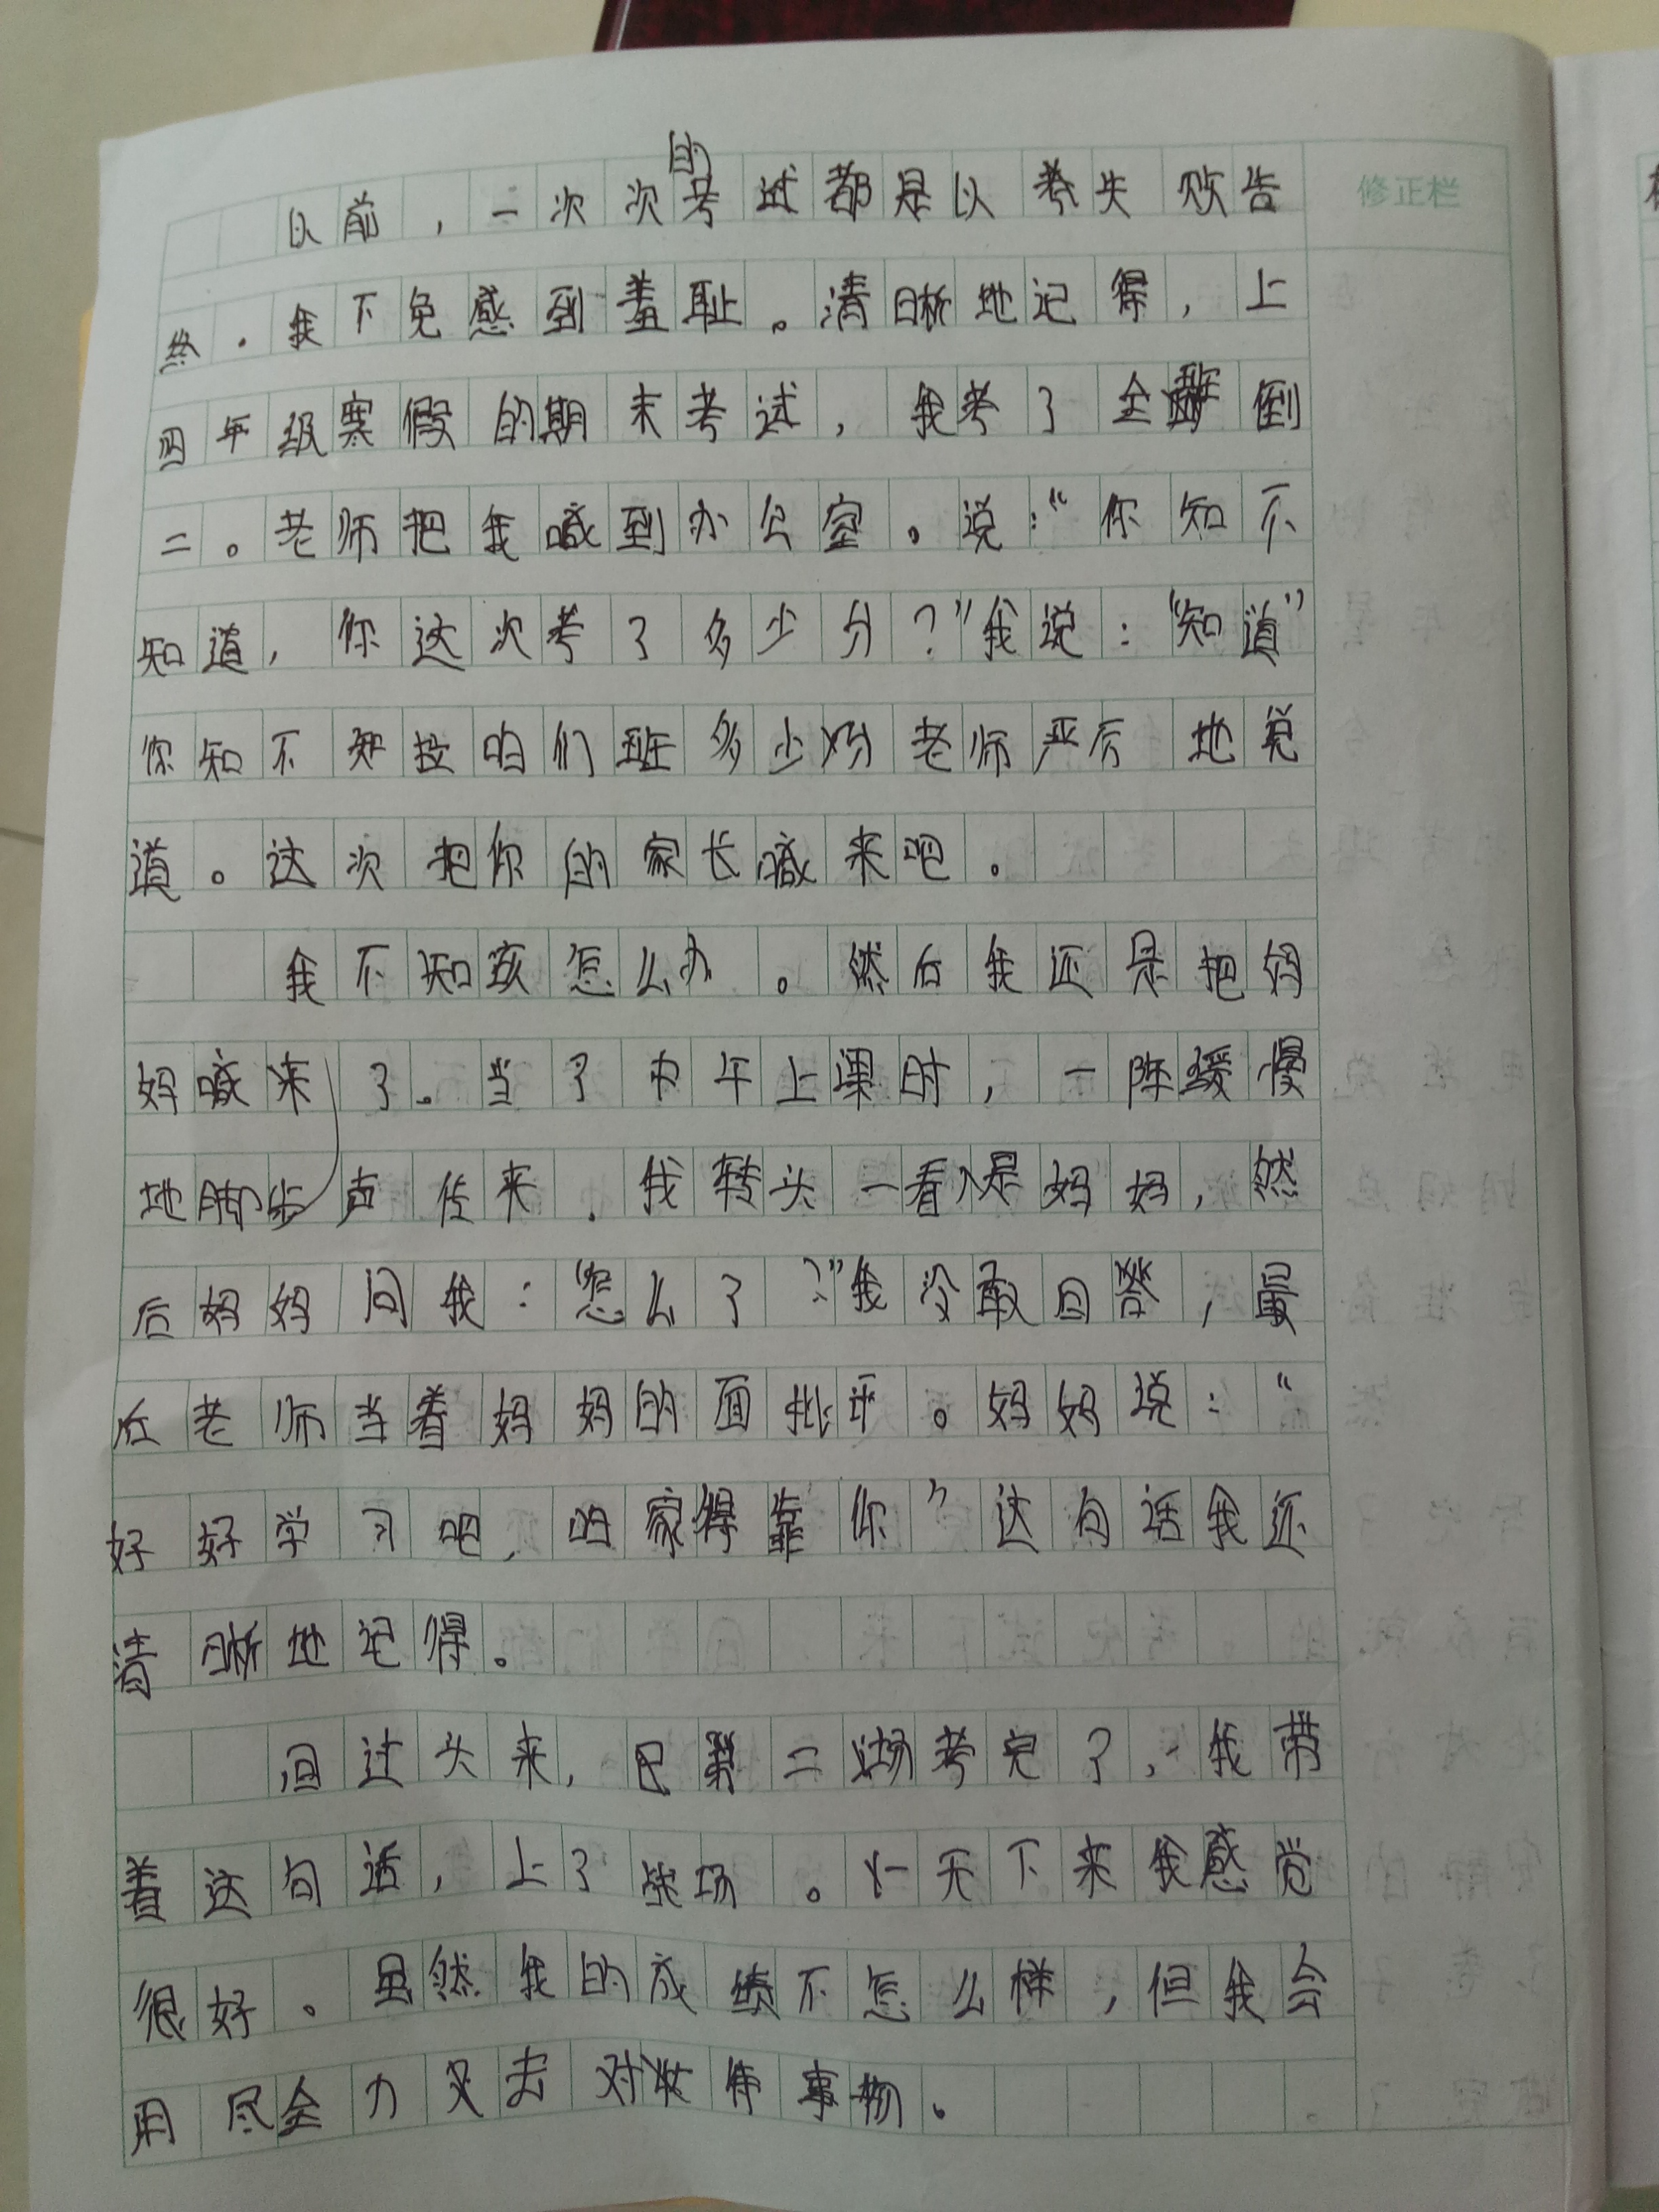 修正栏
以前，一次次的考试都是以失败告
终．我不免感到羞耻。清晰地记得，上
四年级寒假的期末考试，我考了全班倒
二。老师把我喊到办公室。说：“你知不
知道，你这次考了多少分？”我说：“知道”
你知不知拉咱们班多少分老师严厉地说
道。这次把你的家长喊来吧。
我不知该怎么办。然后我还是把妈
妈喊来了。当了中午上课时，一陈缓慢
地脚步声传来．我转头一看是妈妈，然
后妈妈问我：“怎么了？”我没敢回答，最
后老师当着妈妈的面批评。妈妈说：“
好好学习吧，咱家得靠你”这句话我还
清晰地记得。
回过头来，已第二场考完了，我带
着这句话，上了战场。一天下来我感觉
很好。虽然我的成绩不怎么样，但我会
用尽全力又去对待事物。